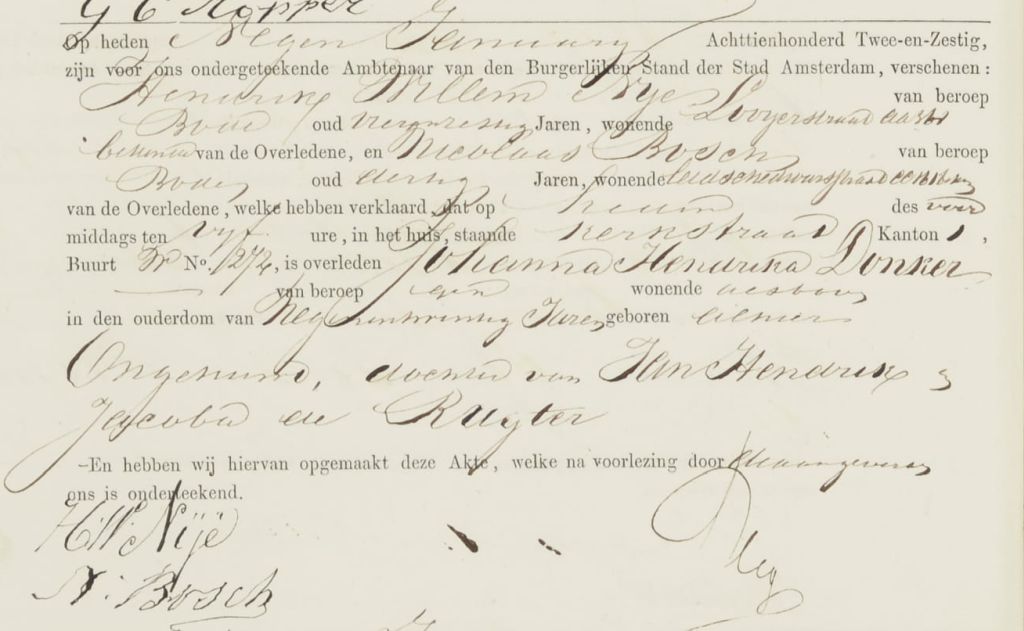 G C Kopper
Op heden Negen Januarij Achttienhonderd Twee-en-Zestig,
zijn voor ons ondergeteekende Ambtenaar van den Burgerlijken Stand der Stad Amsterdam, verschenen:
Hendrik Willem Nÿe van beroep
Bode oud Jaren, wonende Looyerstraat
bekende van de Overledene, en Nicolaas Bosch van beroep
Bode oud dertig Jaren, wonende bekende
van de Overledene, welke hebben verklaard, dat op heden des voor
middags ten vyf ure, in het huis, staande Kerkstraat Kanton 1,
Buurt No. 1272, is overleden Johanna Hendrika Donker
van beroep geen wonende aldaar
in den ouderdom van Negenentwintig Jaren geboren alhier
Ongehuwd, dochter van Jan Hendrik &
Jacoba de Ruyter
-En hebben wij hiervan opgemaakt deze Akte, welke na voorlezing door de aangevers &
ons is onderteekend.
H.W. Nÿe
N. Bosch